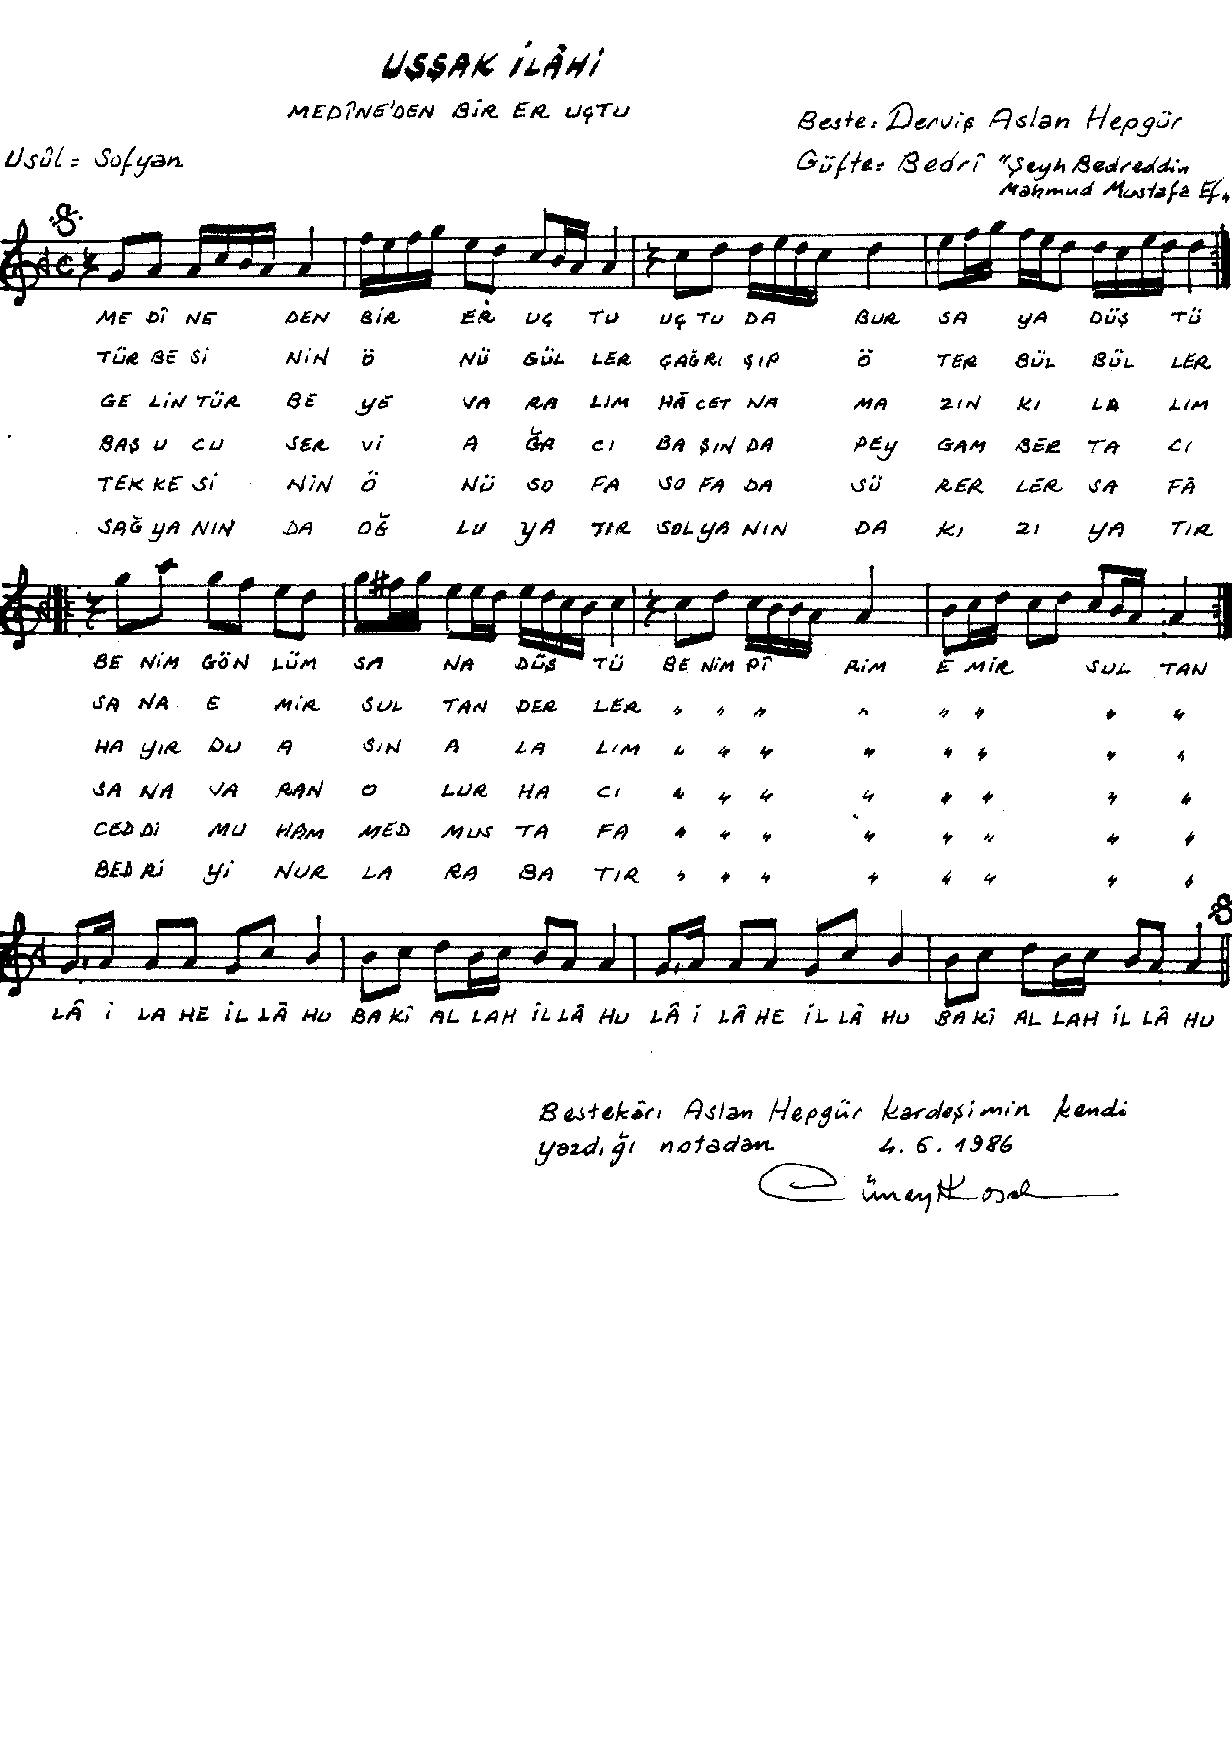 UŞŞAK İLÂHİ
MEDÎNE'DEN BİR ER UÇTU
Beste: Derviş Aslan Hepgür
Usûl = Sofyan
Güfte: Bedrî "Şeyh Bedreddin
Mahmud Mustafa Ef.„
ME DÎ NE DEN BİR ER UÇ TU UÇ TU DA BUR SA YA DÜŞ TÜ
TÜR BE Sİ NİN Ö NÜ GÜL LER ÇAĞRI ŞIP Ö TER BÜL BÜL LER
GE LİN TÜR BE YE VA RA LIM HÂ CET NA MA ZIN KI LA LIM
BAŞ U CU SER Vİ A ĞA CI BA ŞIN DA PEY GAM BER TA CI
TEK KE Sİ NİN Ö NÜ SO FA SO FA DA SÜ RER LER SA FÂ
SAĞ YA NIN DA OĞ LU YA TIR SOL YA NIN DA KI ZI YA TIR
BE NİM GÖN LÜM SA NA DÜŞ TÜ BE NİM PÎ RİM E MİR SUL TAN
SA NA E MİR SUL TAN DER LER " " " " " " " "
HA YIR DU A SIN A LA LIM " " " " " " " "
SA NA VA RAN O LUR HA CI " " " " " " " "
CED Dİ MU HAM MED MUS TA FA " " " " " " " "
BED Rİ Yİ NUR LA RA BA TIR " " " " " " " "
LÂ İ LA HE İL LÂ HU BA KÎ AL LAH İL LÂ HU LÂ İ LÂ HE İL LÂ HU BA KÎ AL LAH İL LÂ HU
Bestekârı Aslan Hepgür kardeşimin kendi
yazdığı notadan 4.6.1986
Cüneyt Kosal